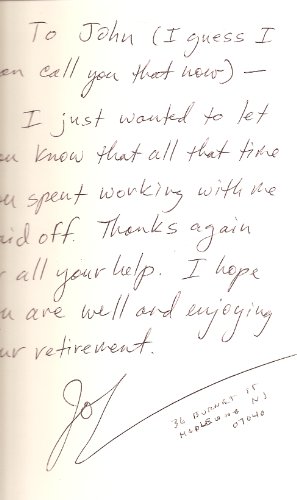 To John (I guess I
an call you that now) —
I just wanted to let
ou know that all that time
ou spent working with me
aid off. Thanks again
r all your help. I hope
ou are well and enjoying
ur retirement.
Jo
36 BURNET ST
MAPLEWOOD NJ
07040